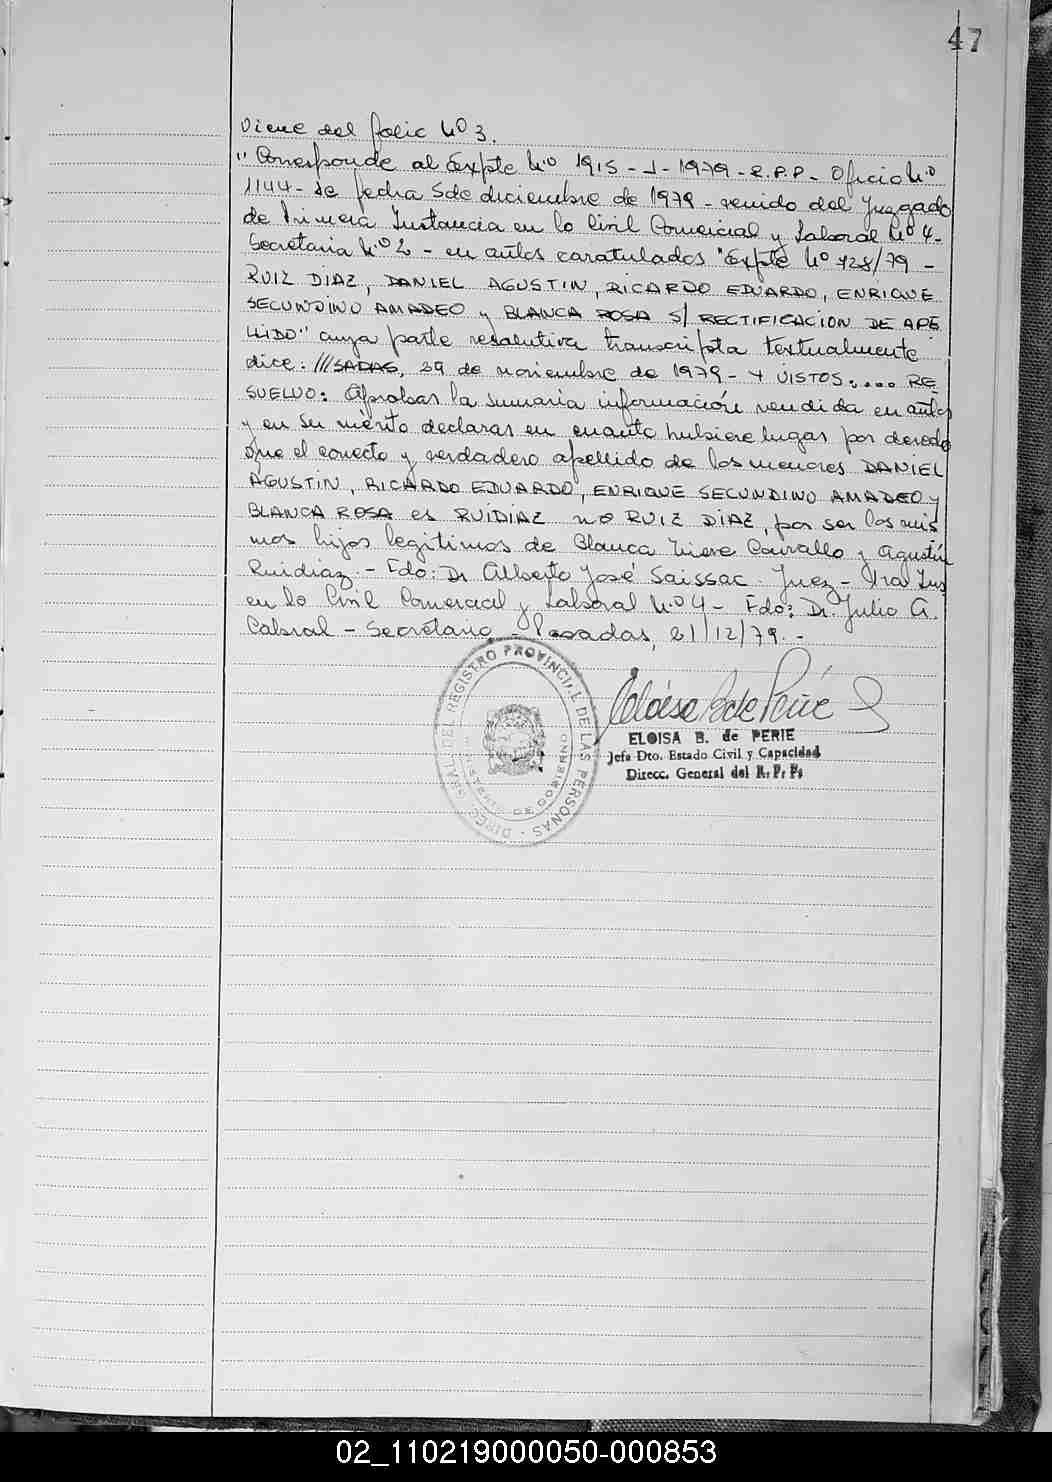 47
Viene del folio Nº 3.
"Corresponde al Expte N.º 1915 - J - 1979 - R.P.P. - Oficio N.º
1144 - de fecha 5 de diciembre de 1979 - venido del Juzgado
de Primera Instancia en lo Civil Comercial y Laboral Nº 4 -
Secretaria N.º 2 - en autos caratulados "Expte Nº 728/79 -
RUIZ DIAZ, DANIEL AGUSTIN, RICARDO EDUARDO, ENRIQUE
SECUNDINO AMADEO y BLANCA ROSA S/ RECTIFICACION DE APE
LLIDO" cuya parte resolutiva transcripta textualmente
dice: ///SADAS, 29 de noviembre de 1979 - Y VISTOS: .... RE
SUELVO: Aprobar la sumaria información rendida en autos
y en su mérito declarar en cuanto hubiere lugar por derecho
que el correcto y verdadero apellido de los menores DANIEL
AGUSTIN, RICARDO EDUARDO, ENRIQUE SECUNDINO AMADEO y
BLANCA ROSA es RUIDIAZ no RUIZ DIAZ, por ser los mis
mos hijos legitimos de Blanca Nieve Carvallo y Agustín
Ruidiaz. - Fdo: Dr Alberto José Saissac. Juez - 1ra Ins
en lo Civil Comercial y Laboral N.º 4 - Fdo: Dr. Julio A.
Cabral - Secretario - Posadas, 21/12/79. -
DIREC. GRAL. DEL REGISTRO PROVINCIAL DE LAS PERSONAS
MINISTERIO DE GOBIERNO
Eloisa B de Perié
ELOISA B. de PERIE
Jefa Dto. Estado Civil y Capacidad
Direcc. General del R. P. P.
02_110219000050-000853